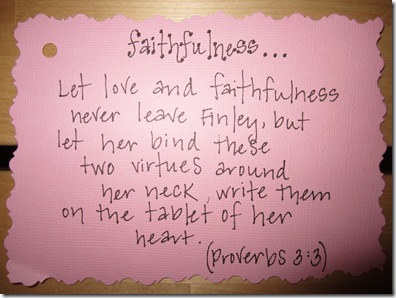 faithfulness...
Let love and faithfulness
never leave Finley, but
let her bind these
two virtues around
her neck, write them
on the tablet of her
heart.
(Proverbs 3:3)